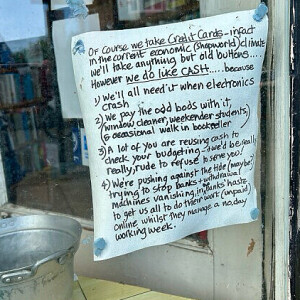 Of Course we take Credit Cards - infact
in the current economic (shopworld) climate
we'll take anything but old buttons....
However we do like CASH..... because
1) We'll all need it when electronics
crash
2) We pay the odd bods with it,
(window cleaner, weekender students,
& occasional walk in bookseller
3) A lot of you are reusing cash to
check your budgeting - we'd be really,
really, rude to refuse to serve you!
4) We're pushing against the tide (maybe)
trying to stop banks + withdrawal
machines vanishing, in banks' haste
to get us all to do their work (unpaid)
online whilst they manage a no day
working week.